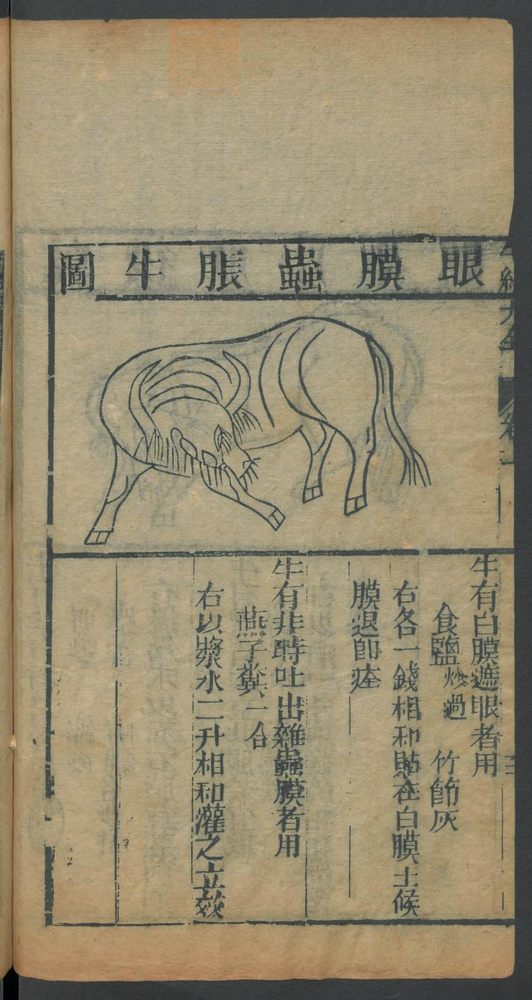 眼膜蟲脹牛圖
牛有白膜遮眼者用
食鹽炒過 竹節灰
右各一錢相和貼在白膜上候
膜退即痊
牛有非時吐出雜蟲膜者用
燕子糞一合
右以漿水二升相和灌之立效